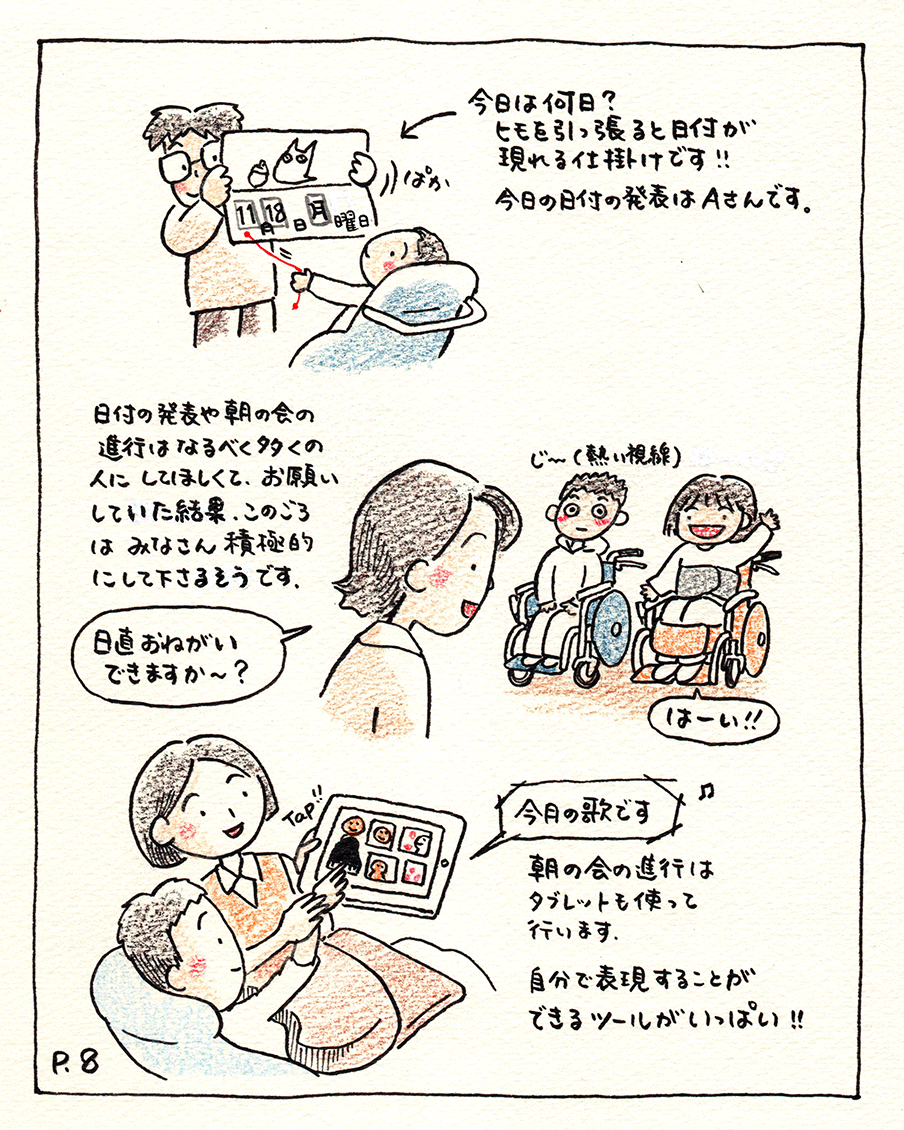 今日は何日？
ヒモを引っ張ると日付が
現れる仕掛けです!!
今日の日付の発表はAさんです。
ぱか
11月18日月曜日
日付の発表や朝の会の
進行はなるべく多くの
人にしてほしくて、お願い
していた結果、このごろ
はみなさん積極的
にして下さるそうです．
じ〜(熱い視線)
日直おねがい
できますか〜？
はーい!!
Tap!!
今月の歌です
♫
朝の会の進行は
タブレットも使って
行います．
自分で表現することが
できるツールがいっぱい!!
P.8